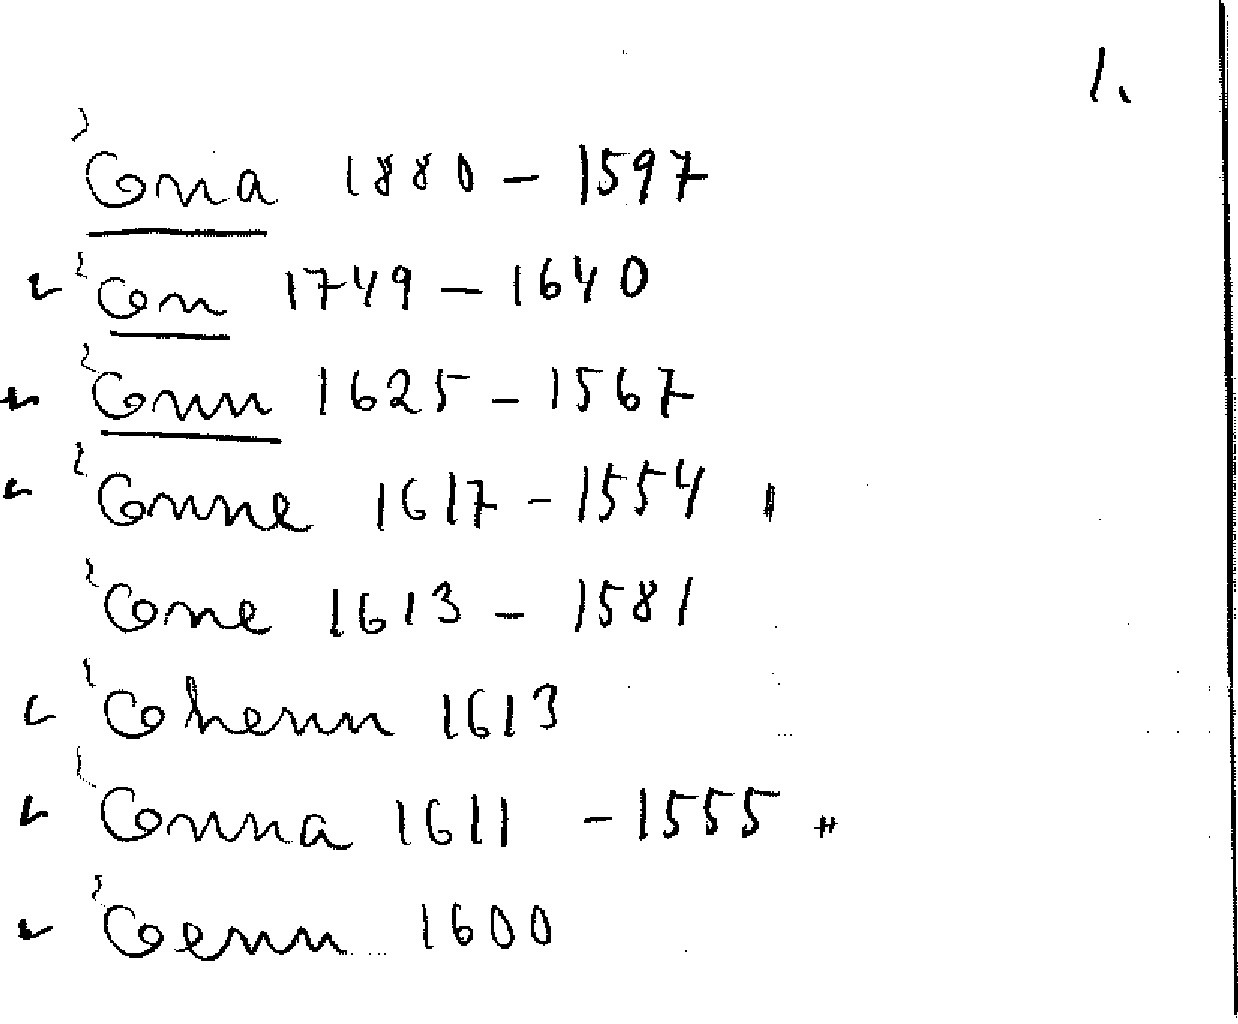 1.
Cona 1880 - 1597
Con 1749 - 1640
Conn 1625 - 1567
Conne 1617 - 1554
Cone 1613 - 1581
Cohenn 1613
Conna 1611 - 1555
Coenn 1600